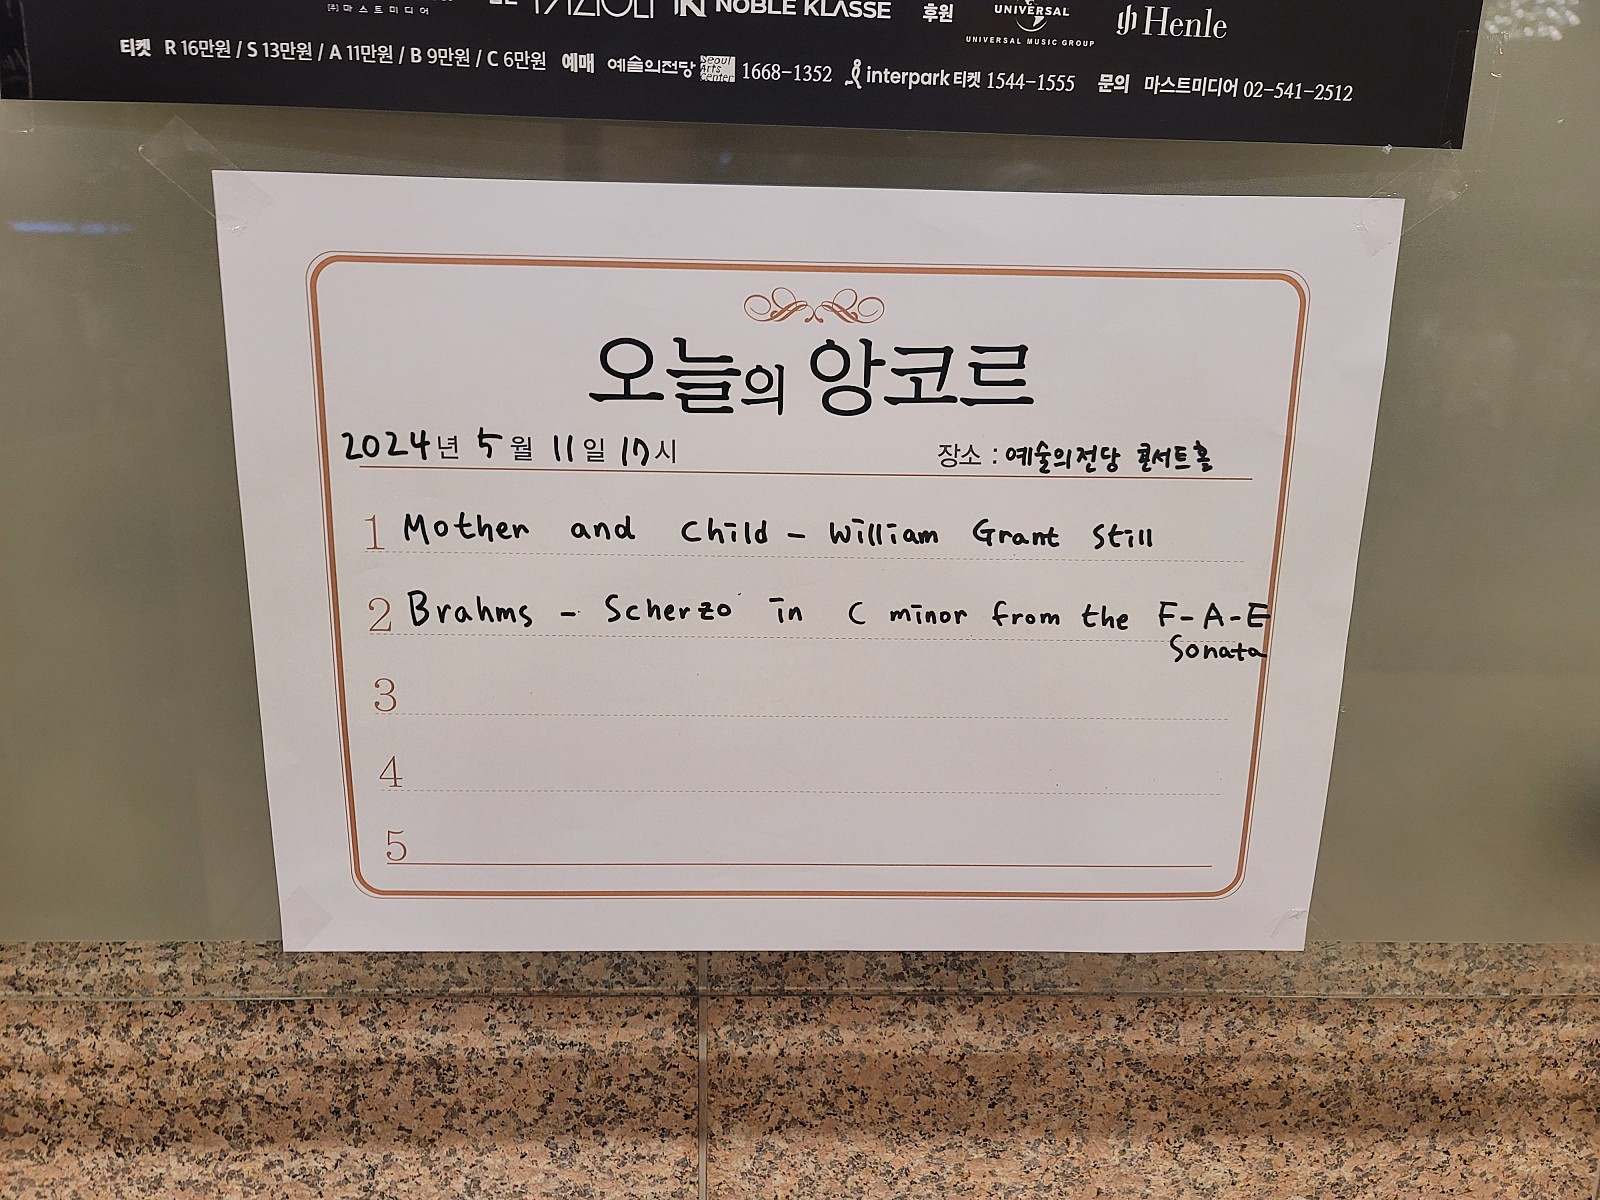 (주)마스트미디어 FAZIOLI NOBLE KLASSE 후원 UNIVERSAL UNIVERSAL MUSIC GROUP Henle
티켓 R 16만원 / S 13만원 / A 11만원 / B 9만원 / C 6만원 예매 예술의전당 Seoul Arts Center 1668-1352 interpark 티켓 1544-1555 문의 마스트미디어 02-541-2512
오늘의 앙코르
2024년 5월 11일 17시 장소 : 예술의전당 콘서트홀
1 Mother and Child - William Grant Still
2 Brahms - Scherzo in C minor from the F-A-E
Sonata
3
4
5